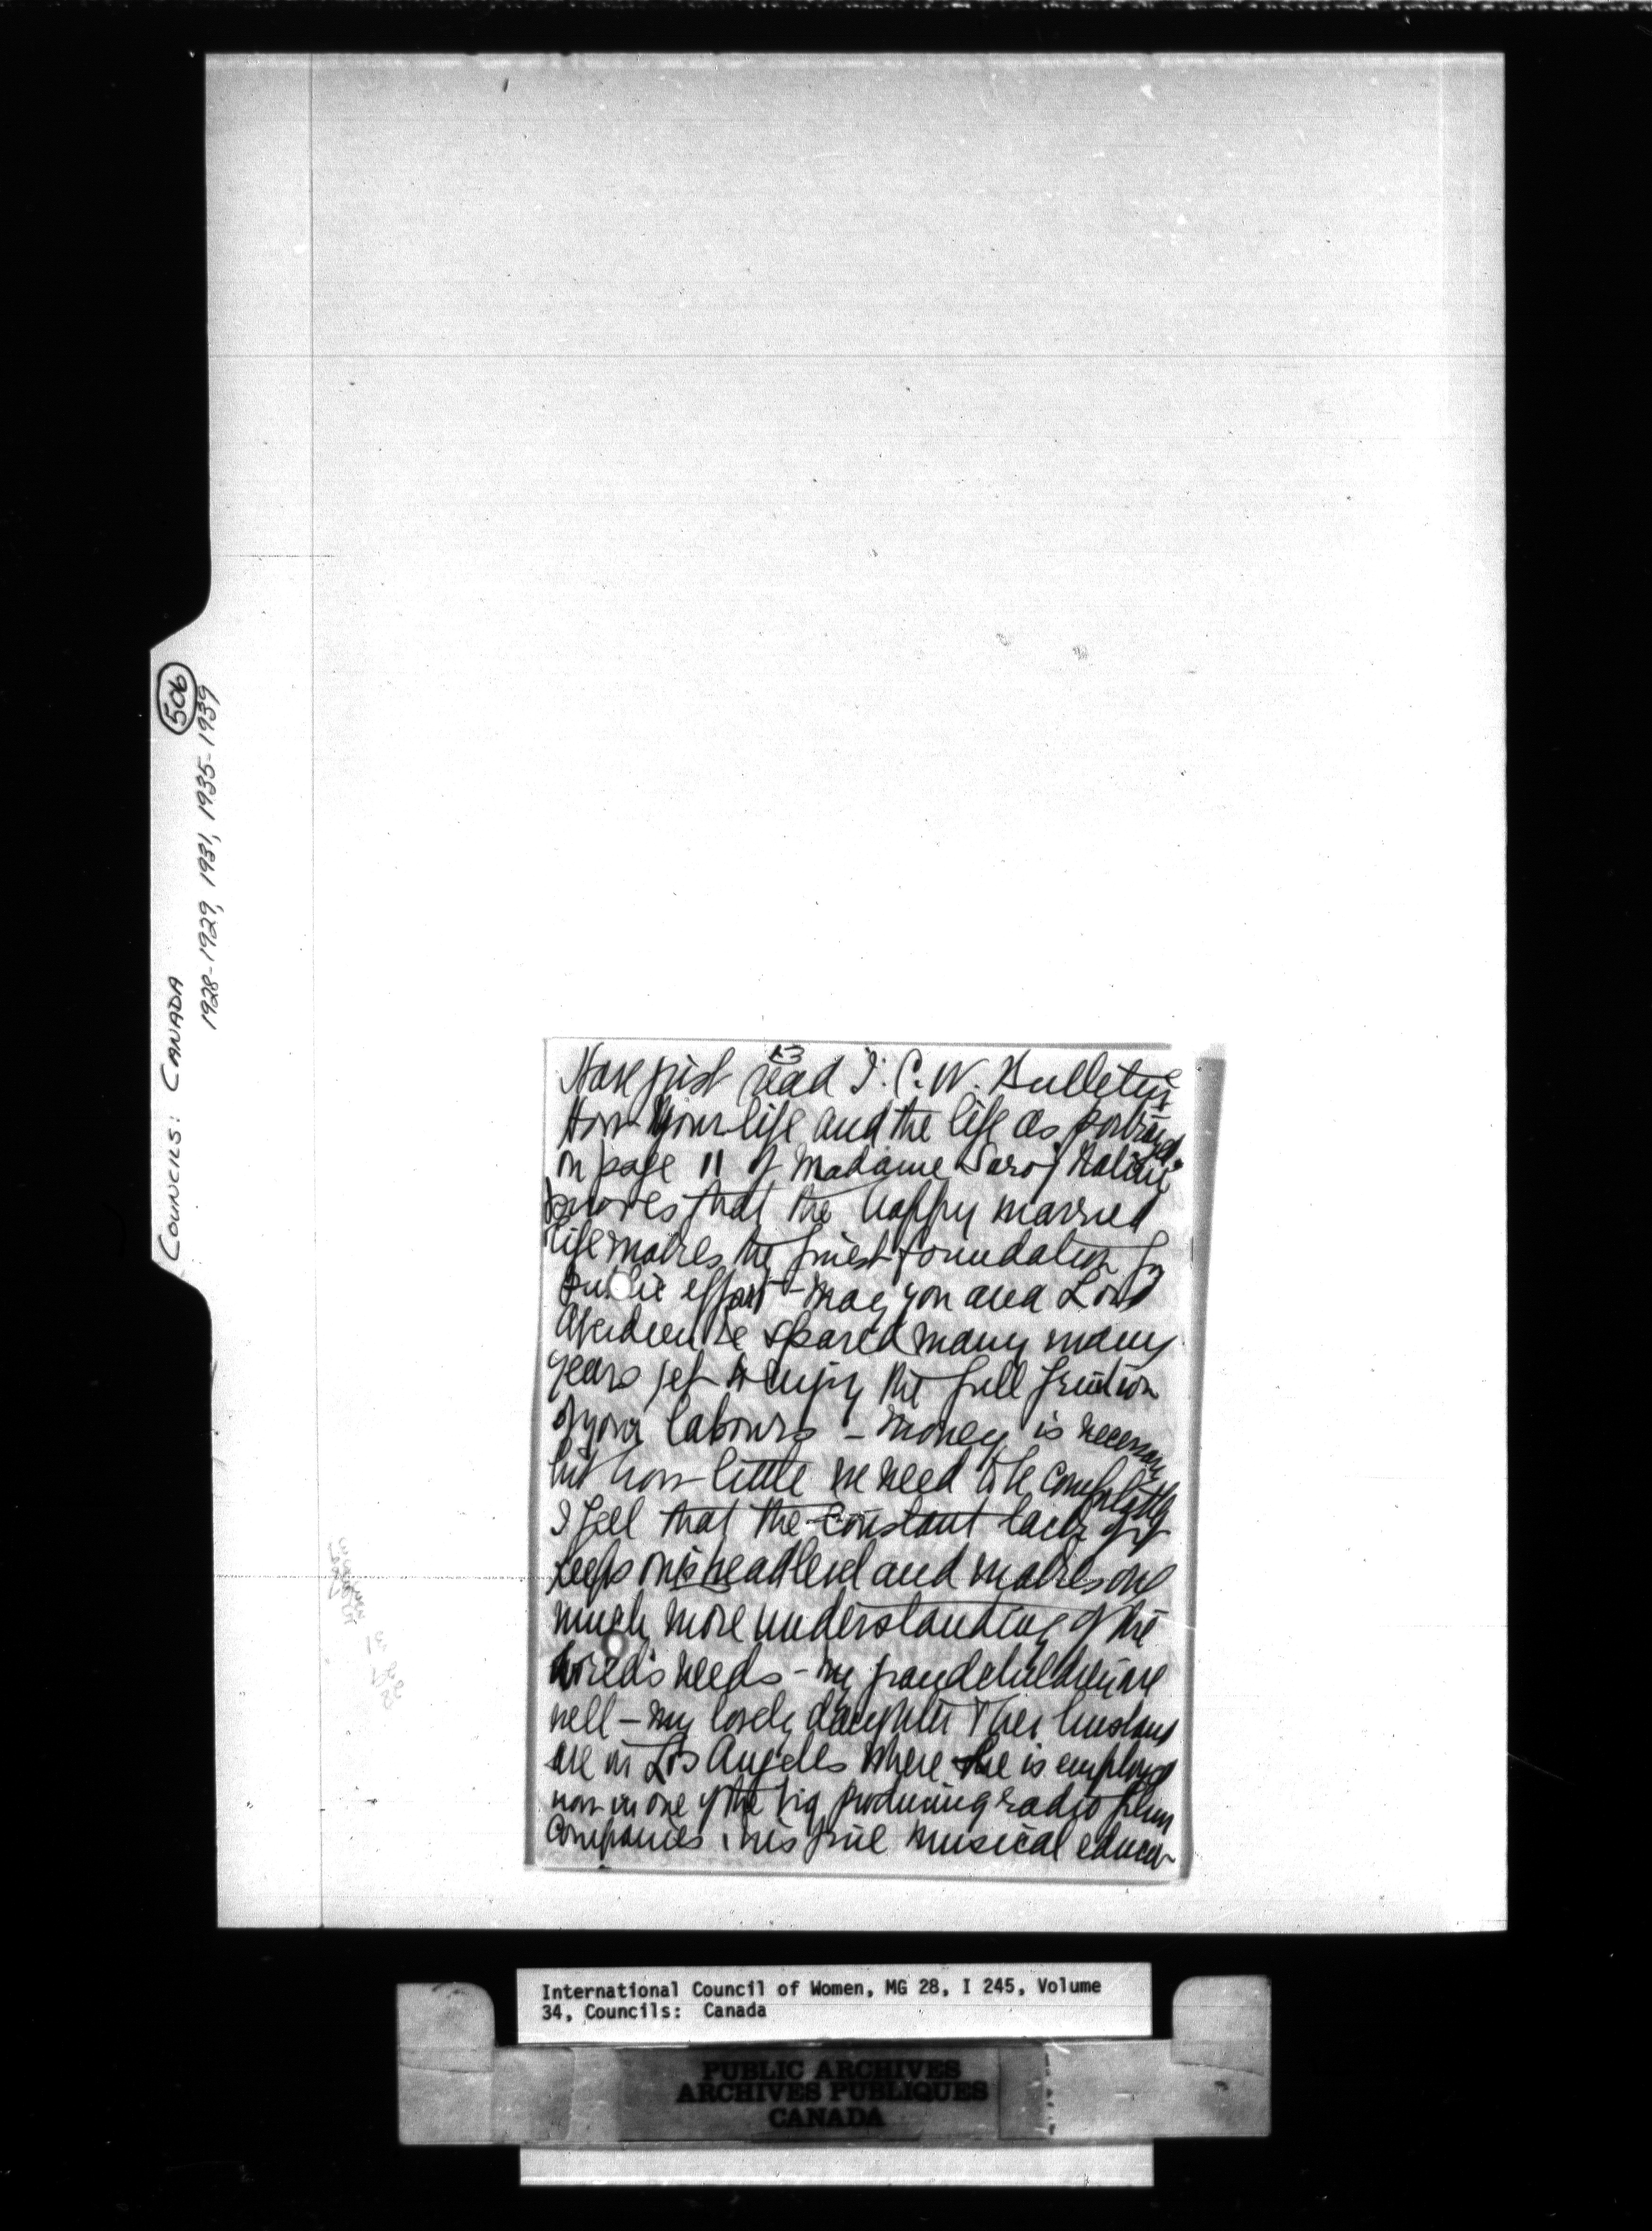 506
COUNCILS: CANADA
1928-1929, 1931, 1935-1939
Have just read I.C.W. Bulletin
How your life and the life as portrayed
on page 11 of Madame Saroj Nalini
proves that the happy married
life makes the finest foundation for
public effort - may you and Lord
Aberdeen be spared many many
years yet to enjoy the full fruition
of your labours - money is necessary
but how little we need to be comfortable
I feel that the constant lack of it
keeps one's head level and makes one
much more understanding of the
world's needs - my grandchildren are
well - my lovely daughter & her husband
are in Los Angeles where he is employed
now in one of the big producing radio film
companies, his fine musical educa-
International Council of Women, MG 28, I 245, Volume
34, Councils: Canada
PUBLIC ARCHIVES
ARCHIVES PUBLIQUES
CANADA